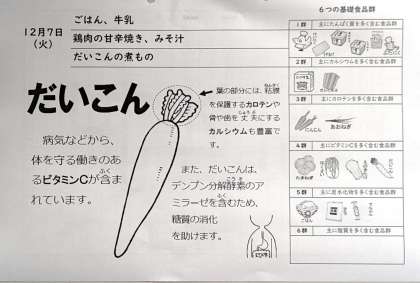 ごはん、牛乳
12月7日
（火）
鶏肉の甘辛焼き、みそ汁
だいこんの煮もの
だいこん
葉の部分には、粘膜
ねんまく
を保護するカロテンや
骨や歯を丈夫にする
じょうぶ
カルシウムも豊富で
す。
病気などから、
体を守る働きのあ
るビタミンCが含ま
ふく
れています。
また、だいこんは、
デンプン分解酵素のア
こうそ
ミラーゼを含むため、
ふく
糖質の消化
を助けます。
6つの基礎食品群
1群 主にたんぱく質を多く含む食品群
2群 主にカルシウムを多く含む食品群
3群 主にカロテンを多く含む食品群
にんじん
あおねぎ
4群 主にビタミンCを多く含む食品群
たまねぎ
5群 主に炭水化物を多く含む食品群
ごはん
6群 主に脂質を多く含む食品群